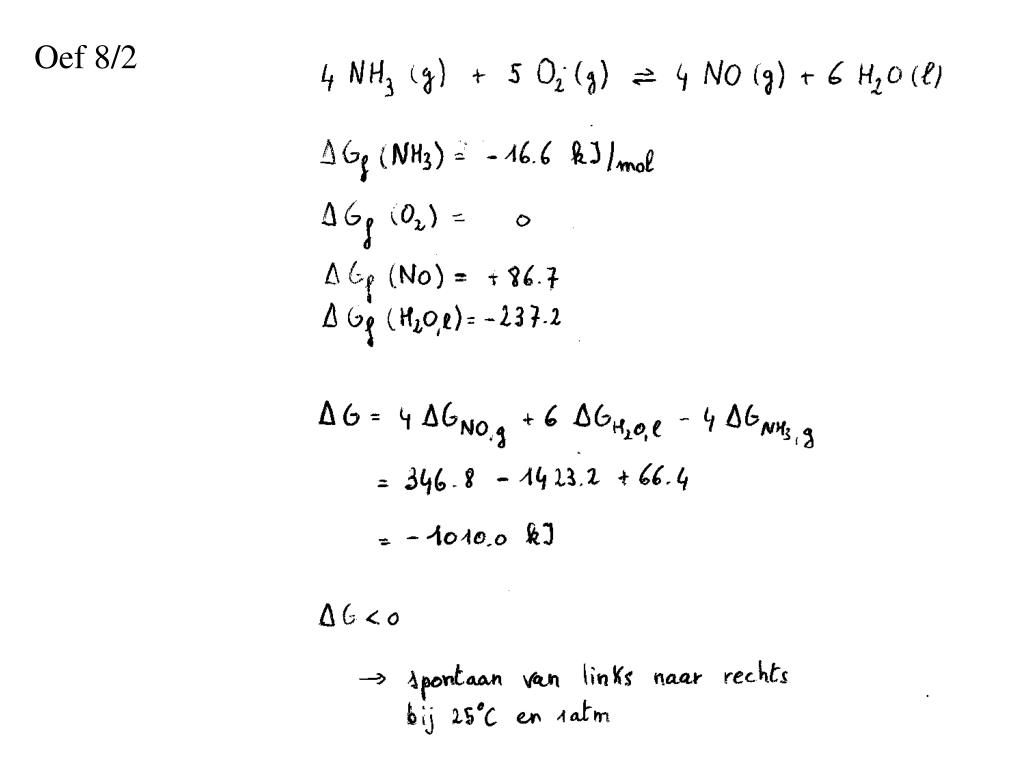 Oef 8/2
4 NH₃ (g) + 5 O₂ (g) ⇌ 4 NO (g) + 6 H₂O (l)
ΔGf (NH₃) = -16.6 kJ/mol
ΔGf (O₂) = 0
ΔGf (NO) = +86.7
ΔGf (H₂O,l) = -237.2
ΔG = 4 ΔG NO,g + 6 ΔG H₂O,l - 4 ΔG NH₃,g
= 346.8 - 1423.2 + 66.4
= -1010.0 kJ
ΔG < 0
→ spontaan van links naar rechts
bij 25°C en 1atm